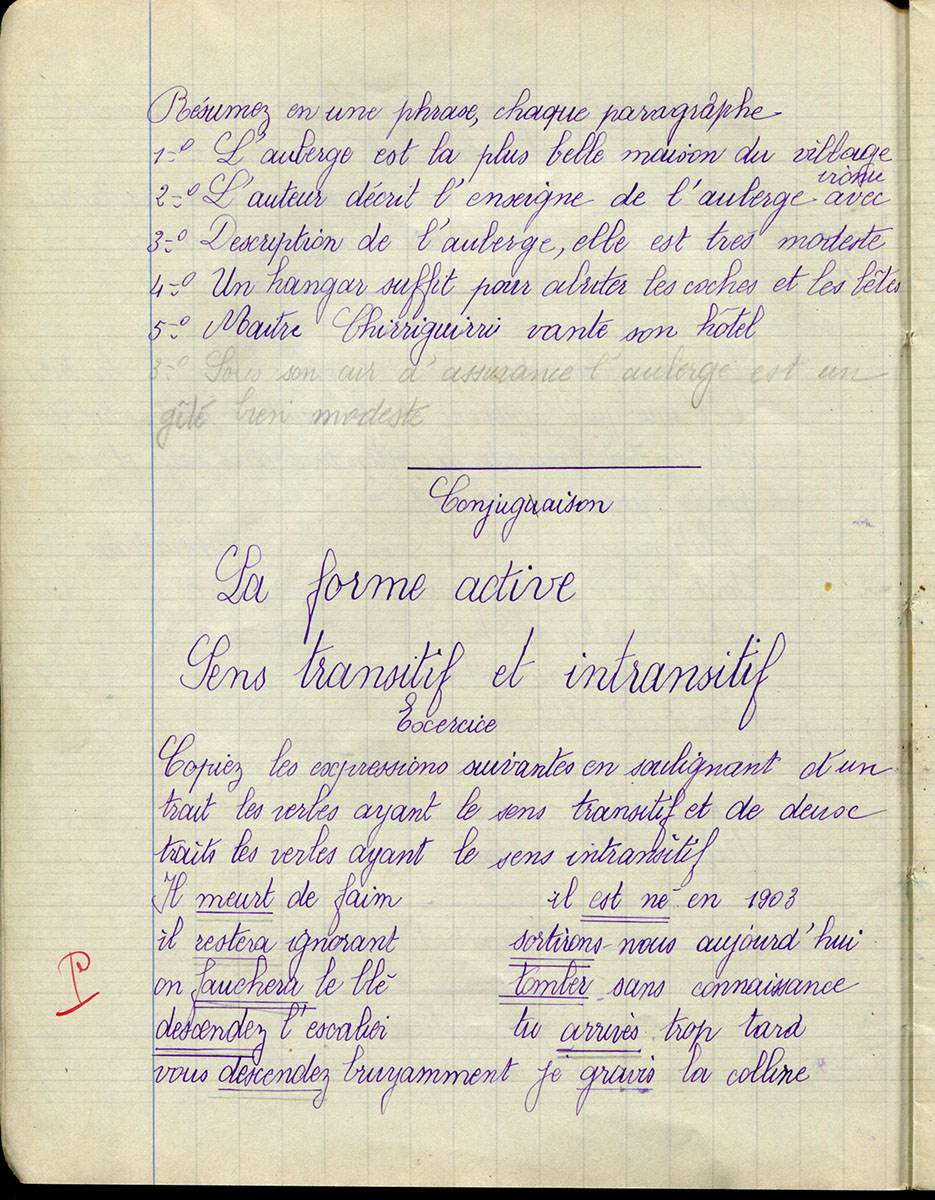 Résumez en une phrase, chaque paragrâphe
1-° L'auberge est la plus belle maison du village
2-° L'auteur décrit l'enseigne de l'auberge avec ironie
3-° Description de l'auberge, elle est très modeste
4-° Un hangar suffit pour abriter les coches et les bêtes
5-° Maitre Chirriguirri vante son hôtel
3-° Sous son air d'assurance l'auberge est un
gîte bien modeste
Conjugaison
La forme active
Sens transitif et intransitif
Exercice
Copiez les expressions suivantes en soulignant d'un
trait les verbes ayant le sens transitif et de deux
traits les verbes ayant le sens intransitif
Il meurt de faim il est né en 1903
il restera ignorant sortirons-nous aujourd'hui
on fauchera le blé tomber sans connaissance
descendez l'escalier tu arrives trop tard
vous descendez bruyamment je gravis la colline